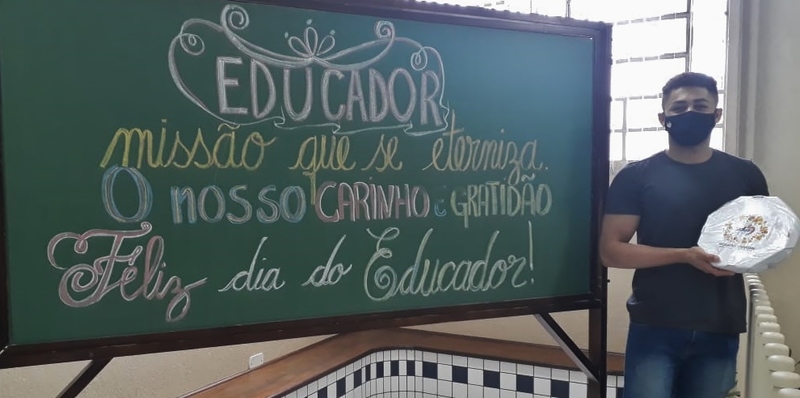 EDUCADOR
missão que se eterniza.
O nosso CARINHO e GRATIDÃO
Féliz dia do Educador!